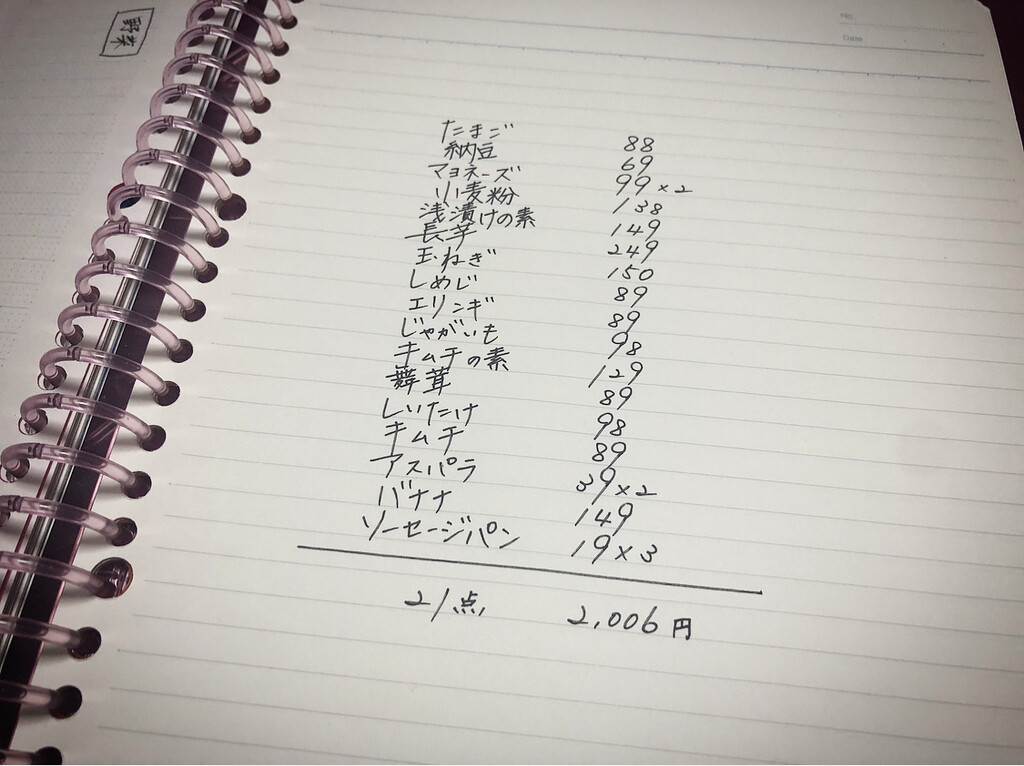 野菜
No.
Date
たまご 88
納豆 69
マヨネーズ 99×2
小麦粉 138
浅漬けの素 149
長芋 249
玉ねぎ 150
しめじ 89
エリンギ 89
じゃがいも 98
キムチの素 129
舞茸 89
しいたけ 98
キムチ 89
アスパラ 39×2
バナナ 149
ソーセージパン 19×3
21点 2,006円